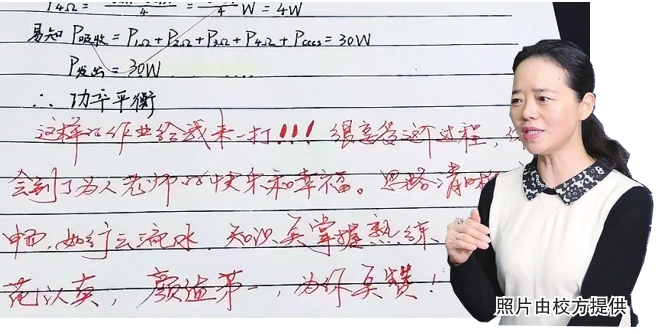 P4Ω = ─── = ─── W = 4W
4 4
易知 P吸收 = P1Ω + P2Ω + P3Ω + P4Ω + Pcccs = 30W
P发出 = 30W
∴ 功率平衡
这样的作业给我来一打!!! 很享受这个过程,
会到了为人老师的快乐和幸福。思路清晰
如行云流水 知识点掌握熟练、
认真,颜值第一,为你点赞!
照片由校方提供